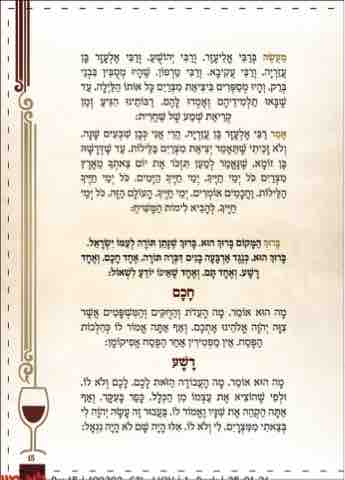 מַעֲשֶׂה בְּרַבִּי אֱלִיעֶזֶר, וְרַבִּי יְהוֹשֻׁעַ, וְרַבִּי אֶלְעָזָר בֶּן
עֲזַרְיָה, וְרַבִּי עֲקִיבָא, וְרַבִּי טַרְפוֹן, שֶׁהָיוּ מְסֻבִּין בִּבְנֵי
בְרַק, וְהָיוּ מְסַפְּרִים בִּיצִיאַת מִצְרַיִם כָּל אוֹתוֹ הַלַּיְלָה, עַד
שֶׁבָּאוּ תַלְמִידֵיהֶם וְאָמְרוּ לָהֶם, רַבּוֹתֵינוּ הִגִּיעַ זְמַן
קְרִיאַת שְׁמַע שֶׁל שַׁחֲרִית:
אָמַר רַבִּי אֶלְעָזָר בֶּן עֲזַרְיָה, הֲרֵי אֲנִי כְּבֶן שִׁבְעִים שָׁנָה,
וְלֹא זָכִיתִי שֶׁתֵּאָמֵר יְצִיאַת מִצְרַיִם בַּלֵּילוֹת, עַד שֶׁדְּרָשָׁהּ
בֶּן זוֹמָא, שֶׁנֶּאֱמַר לְמַעַן תִּזְכֹּר אֶת יוֹם צֵאתְךָ מֵאֶרֶץ
מִצְרַיִם כֹּל יְמֵי חַיֶּיךָ, יְמֵי חַיֶּיךָ הַיָּמִים, כֹּל יְמֵי חַיֶּיךָ
הַלֵּילוֹת, וַחֲכָמִים אוֹמְרִים, יְמֵי חַיֶּיךָ, הָעוֹלָם הַזֶּה, כֹּל יְמֵי
חַיֶּיךָ, לְהָבִיא לִימוֹת הַמָּשִׁיחַ:
בָּרוּךְ הַמָּקוֹם בָּרוּךְ הוּא, בָּרוּךְ שֶׁנָּתַן תּוֹרָה לְעַמּוֹ יִשְׂרָאֵל,
בָּרוּךְ הוּא. כְּנֶגֶד אַרְבָּעָה בָנִים דִּבְּרָה תוֹרָה, אֶחָד חָכָם, וְאֶחָד
רָשָׁע, וְאֶחָד תָּם, וְאֶחָד שֶׁאֵינוֹ יוֹדֵעַ לִשְׁאוֹל:
חָכָם
מָה הוּא אוֹמֵר, מָה הָעֵדֹת וְהַחֻקִּים וְהַמִּשְׁפָּטִים אֲשֶׁר
צִוָּה יְהֹוָה אֱלֹהֵינוּ אֶתְכֶם, וְאַף אַתָּה אֱמוֹר לוֹ כְּהִלְכוֹת
הַפֶּסַח, אֵין מַפְטִירִין אַחַר הַפֶּסַח אֲפִיקוֹמָן:
רָשָׁע
מָה הוּא אוֹמֵר, מָה הָעֲבוֹדָה הַזֹּאת לָכֶם, לָכֶם וְלֹא לוֹ,
וּלְפִי שֶׁהוֹצִיא אֶת עַצְמוֹ מִן הַכְּלָל, כָּפַר בָּעִקָּר, וְאַף
אַתָּה הַקְהֵה אֶת שִׁנָּיו וֶאֱמוֹר לוֹ, בַּעֲבוּר זֶה עָשָׂה יְהֹוָה לִי
בְּצֵאתִי מִמִּצְרָיִם, לִי וְלֹא לוֹ, אִלּוּ הָיָה שָׁם לֹא הָיָה נִגְאָל:
15